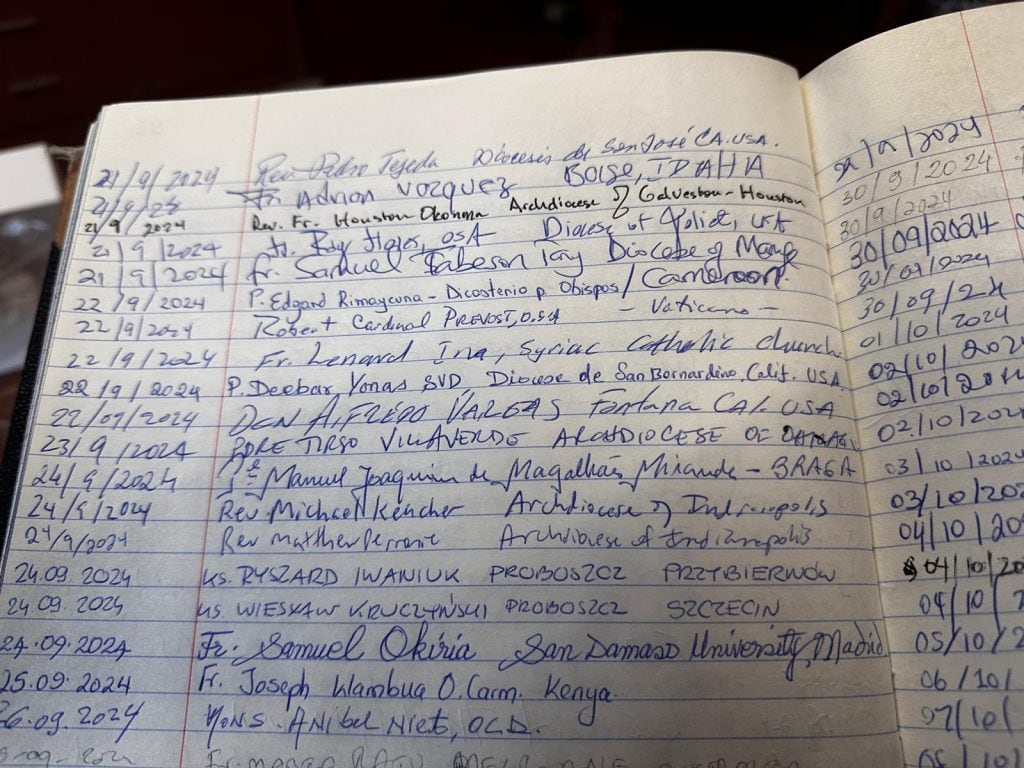 21/9/2024 Rev. Pedro Tejeda Diócesis de San José CA. USA.
21/9/24 Fr. Adrian Vazquez BOISE, IDAHIA
21/9/2024 Rev. Fr. Houston Okonma Archdiocese of Galveston-Houston
21/9/2024 Fr. Ray Flores, OSA Diocese of Joliet, USA
21/9/2024 Fr. Samuel Tabeson Diocese of Mamfe
22/9/2024 P. Edgard Rimaycuna - Dicasterio p. Obispos / Cameroon.
22/9/2024 Robert Cardinal PREVOST, O.S.A - Vaticano -
22/9/2024 Fr. Lenard Ina, Syriac Catholic church
22/9/2024 P. Deebar Yonas SVD, Diocese de San Bernardino, Calif. USA.
22/09/2024 DCN ALFREDO VARGAS Fontana CAL. USA
23/9/2024 PDRE TIRSO VILLAVERDE ARCHDIOCESE OF
24/9/2024 Pe Manuel Joaquim de Magalhães Miranda - BRAGA
24/9/2024 Rev. Michael Keucher Archdiocese of Indianapolis
24/9/2024 Rev Matthew Perronie Archdiocese of Indianapolis
24.09.2024 KS. RYSZARD IWANIUK PROBOSZCZ PRZYBIERNÓW
24.09.2024 KS. WIESŁAW KRUCZYŃSKI PROBOSZCZ SZCZECIN
24.09.2024 Fr. Samuel Okiria San Damaso University, Madrid.
25.09.2024 Fr. Joseph Wambua O.Carm. Kenya.
26.09.2024 MONS. ANIBAL Nieto, OCD.
/2024
30/9/2024
30/9/2024
30/09/2024
30/09/2024
30/09/24
01/10/2024
02/10/202
02/10/20
02/10/202
03/10/2024
03/10/202
04/10/20
04/10/20
04/10/
05/10/2
06/10/
07/10/